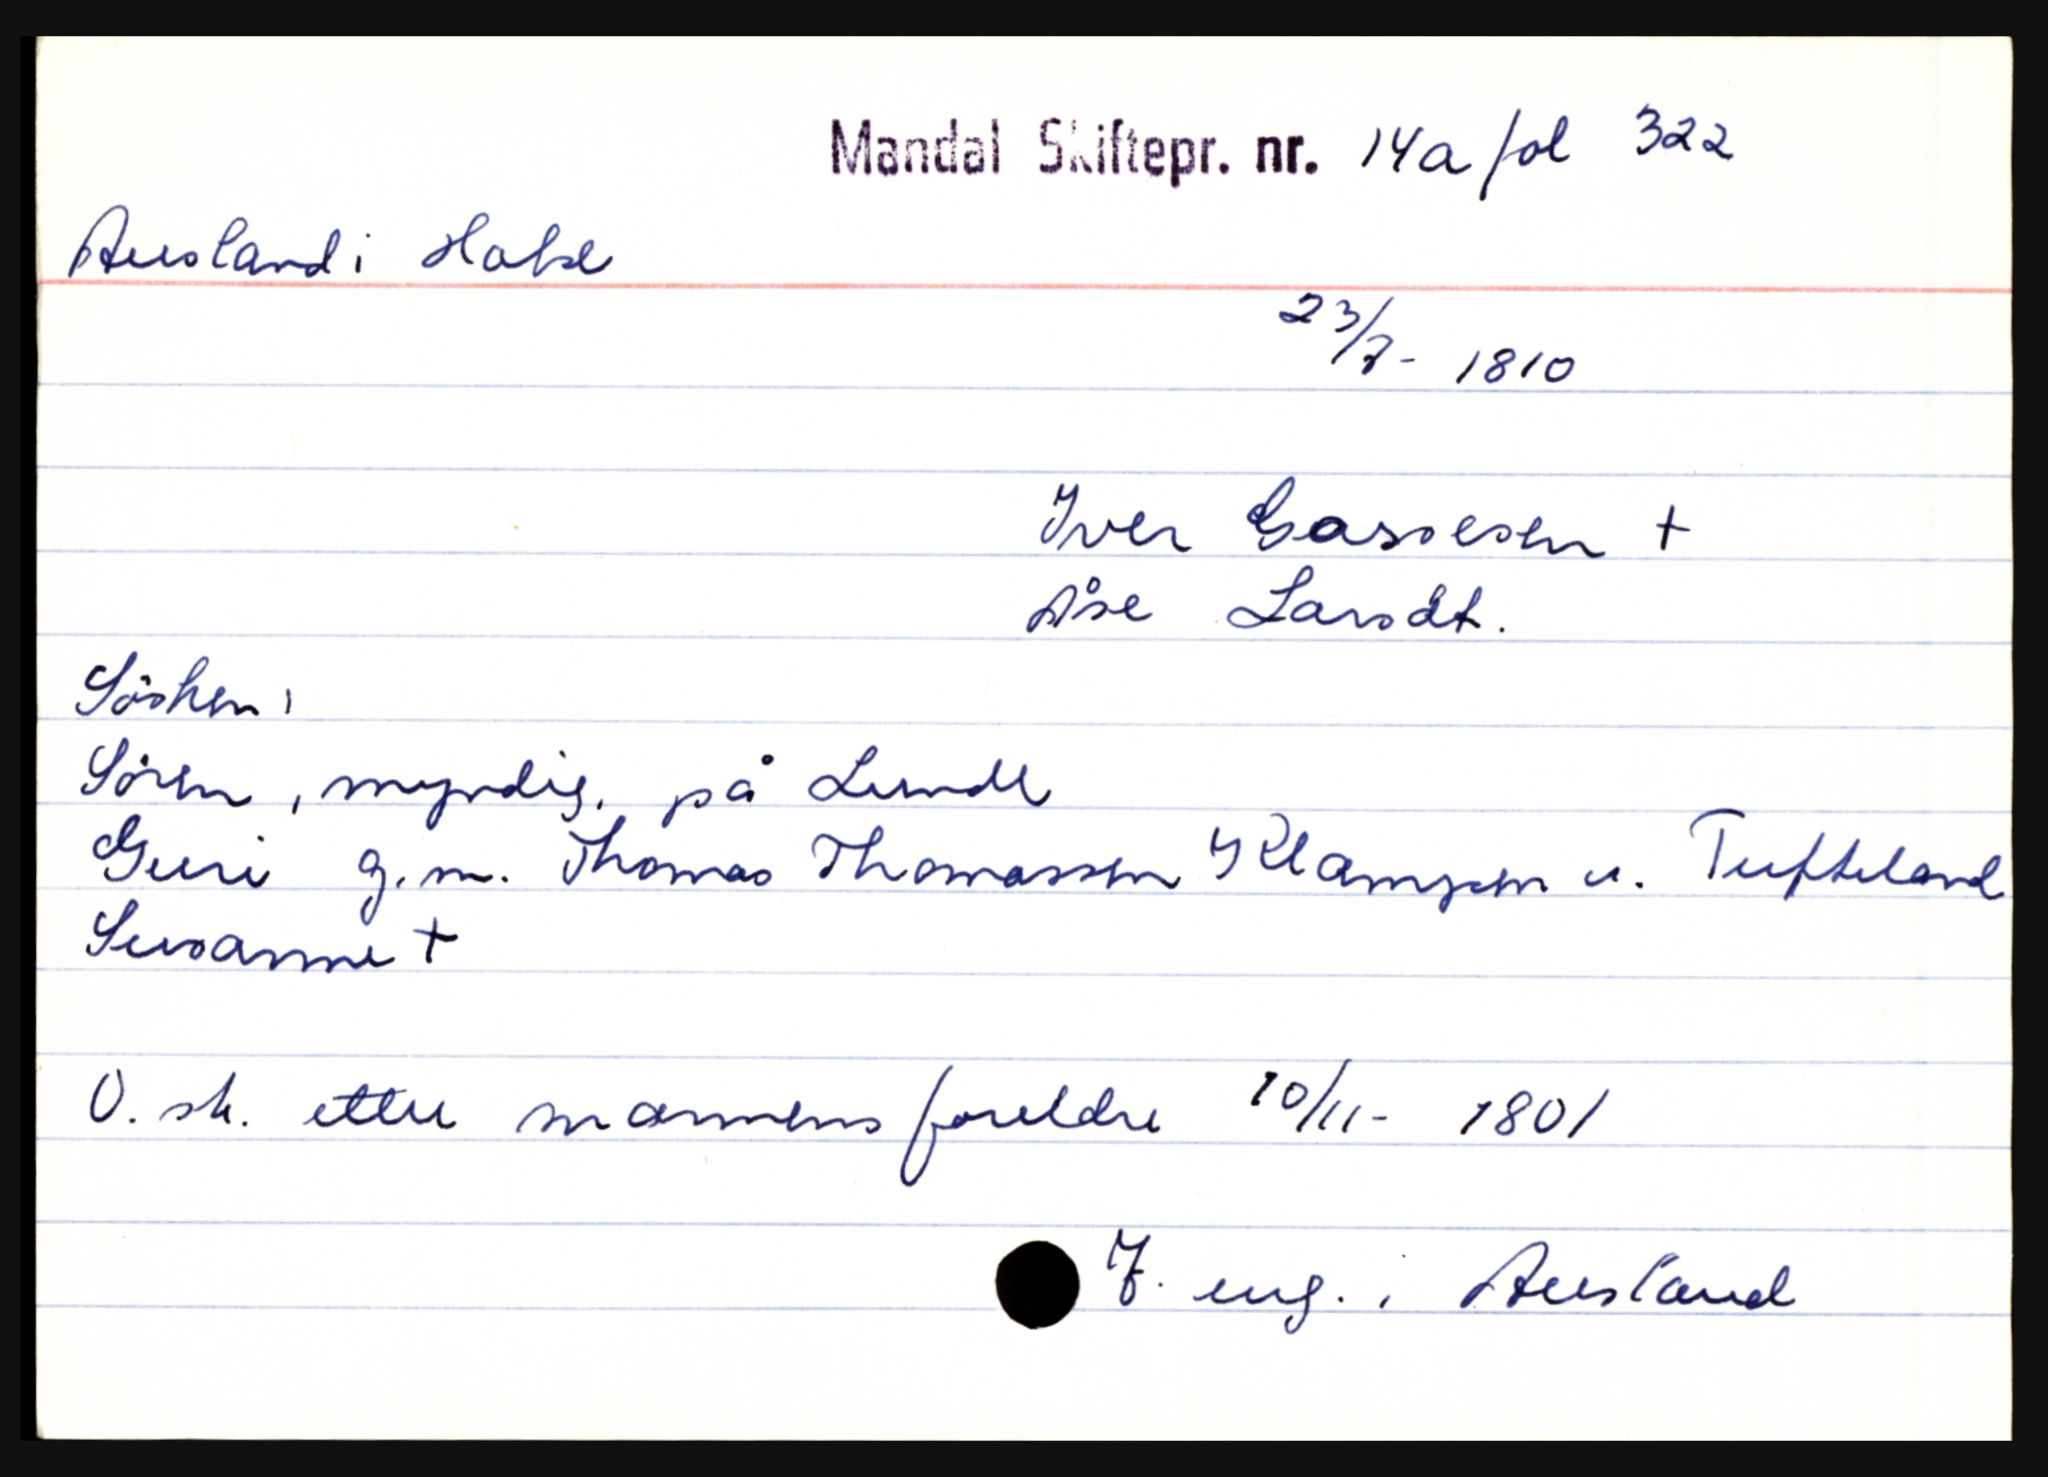 Mandal Skiftepr. nr. 14a fol 322
Ausland i Halse
23/7- 1810
Iver Gassesen +
Åse Larsdt.
Sösken:
Sören, myndig, på Lunde
Guri g.m. Thomas Thomassen Klampen u. Tufteland
Susanne +
O. sk. etter mannens foreldre 10/11- 1801
F. eng. i Ausland